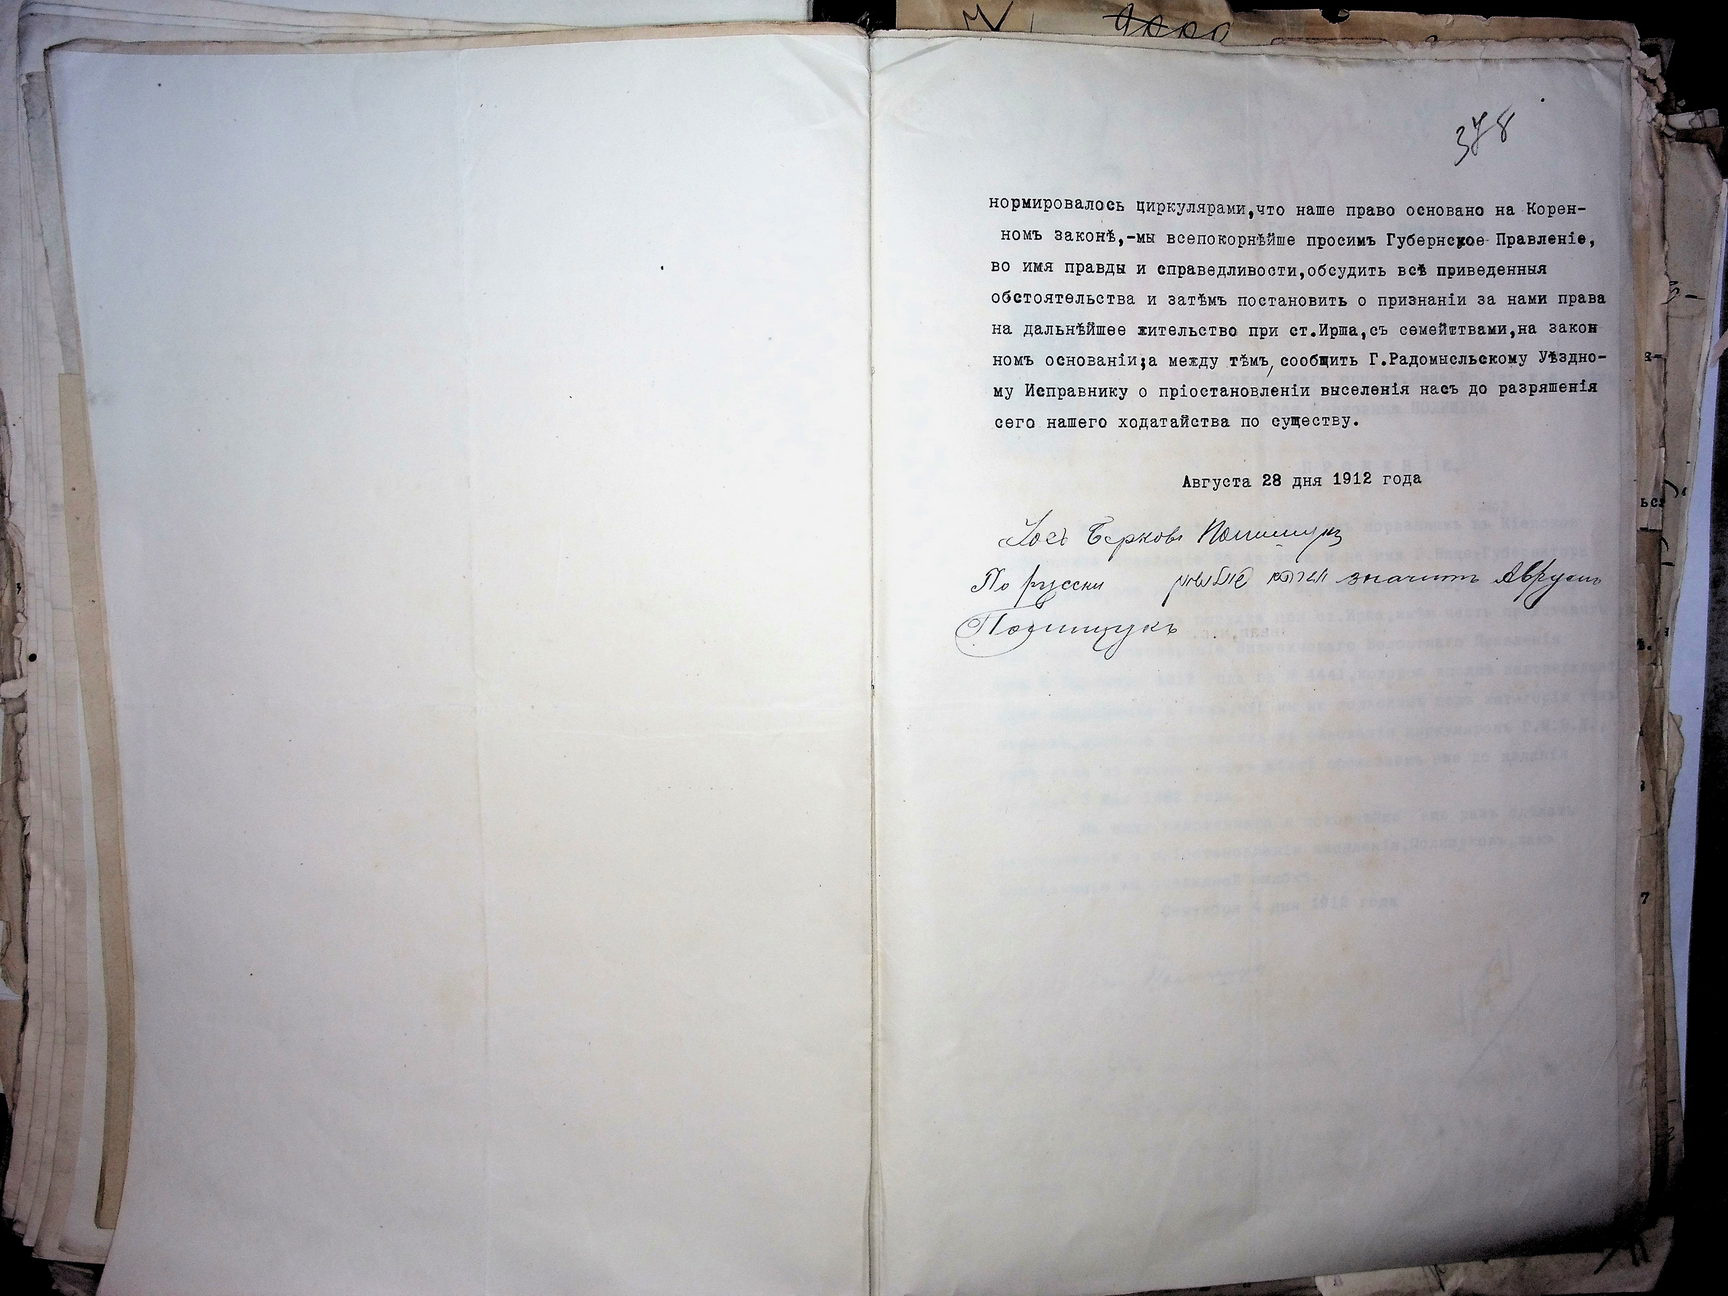 378
нормировалось циркулярами,что наше право основано на Корен-
номъ законѣ,-мы всепокорнѣйше просимъ Губернское Правленіе,
во имя правды и справедливости,обсудить всѣ приведенныя
обстоятельства и затѣмъ постановить о признаніи за нами права
на дальнѣйшее жительство при ст.Ирша,съ семействами,на закон
номъ основаніи;а между тѣмъ, сообщить Г.Радомысльскому Уѣздно-
му Исправнику о пріостановленіи выселенія насъ до разряшенія
сего нашего ходатайства по существу.
Августа 28 дня 1912 года
Берковъ Полищукъ
По русски значитъ Аврумъ
Полищукъ